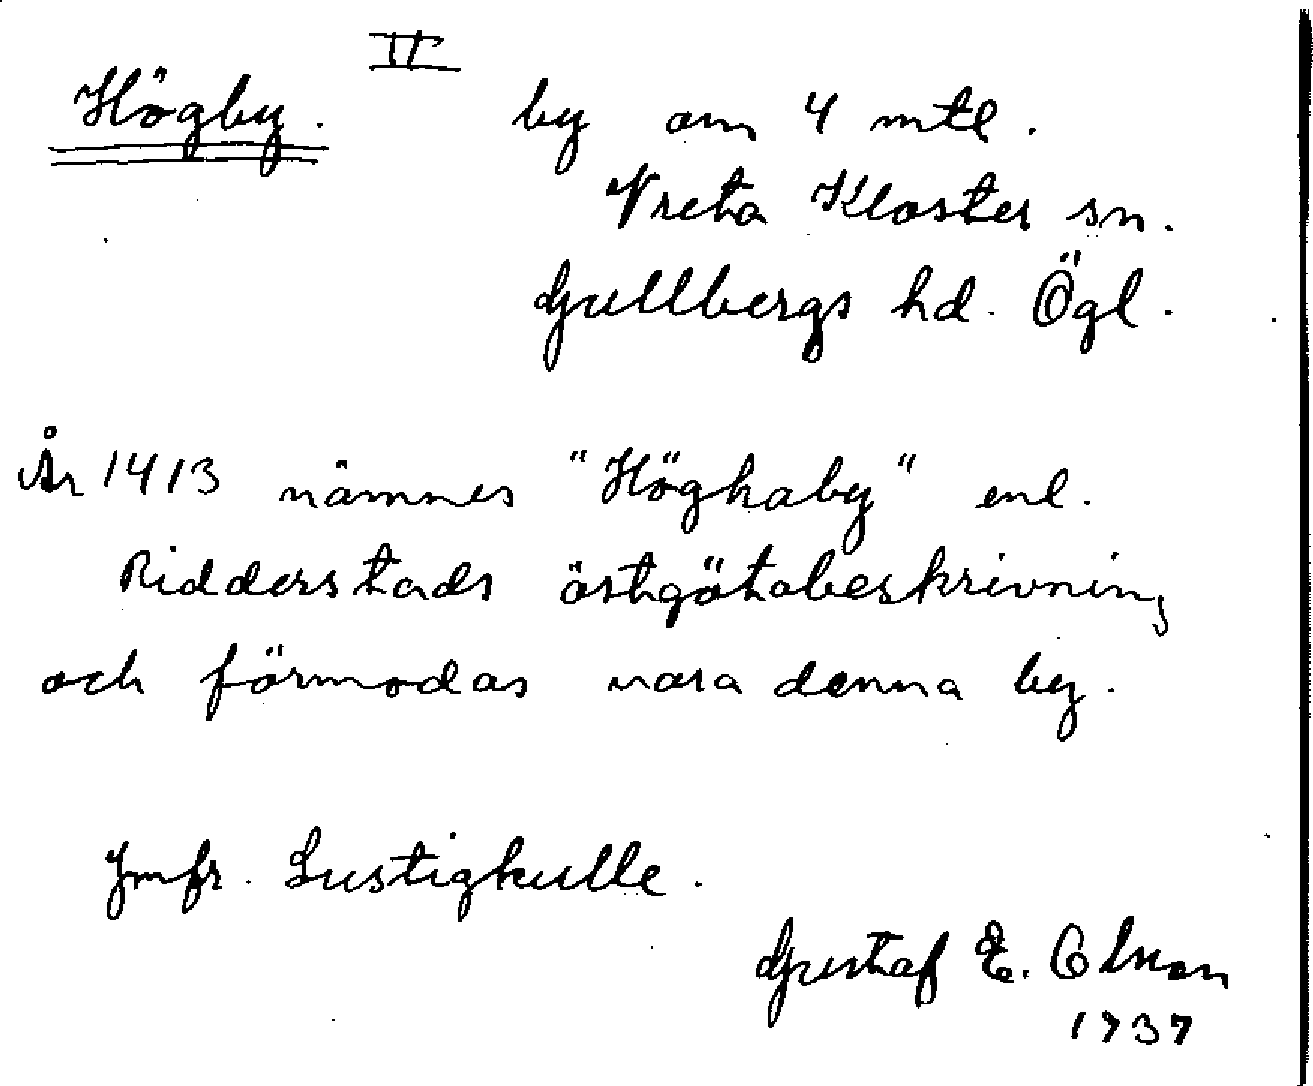 II
Högby. by om 4 mtl.
Vreta Kloster sn.
Gullbergs hd. Ögl.
År 1413 nämnes "Höghaby" enl.
Ridderstads östgötabeskrivning
och förmodas vara denna by.
Jmfr. Lustigkulle.
Gustaf E. Olsson
1937